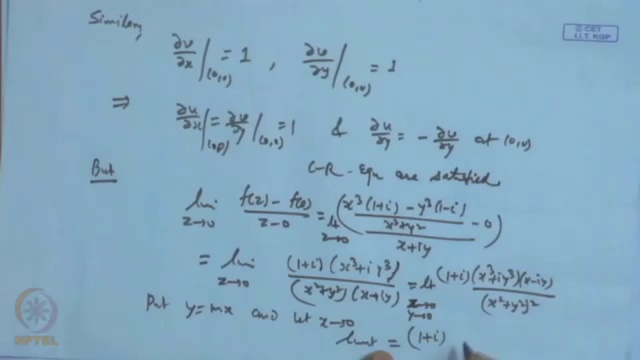 Similarly
© CET
I.I.T. KGP
∂v/∂x|(0,0) = 1 , ∂v/∂y|(0,0) = 1
⇒ ∂u/∂x|(0,0) = ∂v/∂y|(0,0) = 1 & ∂u/∂y = - ∂v/∂y at (0,0)
C-R- Eqn are satisfied
But
lim z→0 (f(z) - f(0))/(z-0) = Lt z→0 ((x³(1+i) - y³(1-i))/(x²+y²) - 0)/(x+iy)
= lim z→0 (1+i)(x³+iy³)/((x²+y²)(x+iy)) = Lt x→0 y→0 (1+i)(x³+iy³)(x-iy)/(x²+y²)²
Put y=mx and let x→0
limit = (1+i)
NPTEL